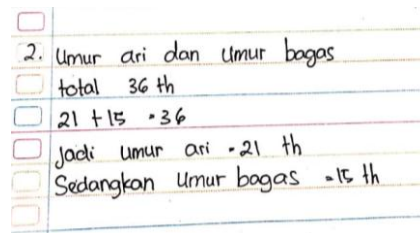 2. Umur ari dan umur bagas
total 36 th
21 + 15 = 36
Jadi umur ari = 21 th
Sedangkan umur bagas = 15 th